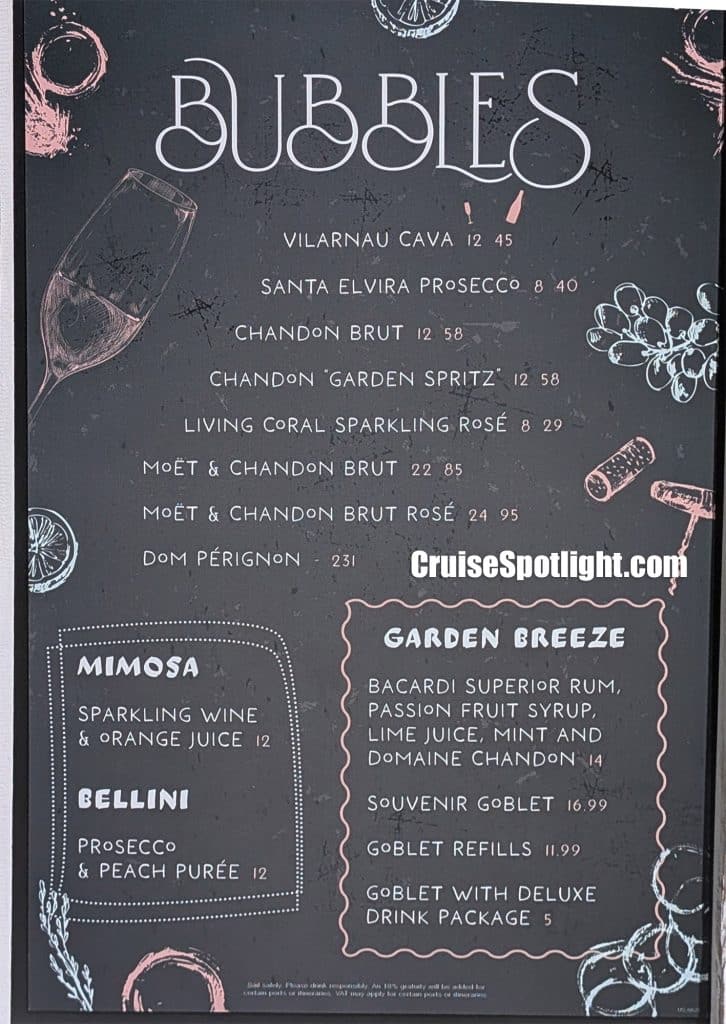 BUBBLES
VILARNAU CAVA 12 45
SANTA ELVIRA PROSECCO 8 40
CHANDON BRUT 12 58
CHANDON "GARDEN SPRITZ" 12 58
LIVING CORAL SPARKLING ROSÉ 8 29
MOËT & CHANDON BRUT 22 85
MOËT & CHANDON BRUT ROSÉ 24 95
DOM PÉRIGNON - 231
CruiseSpotlight.com
MIMOSA
SPARKLING WINE
& ORANGE JUICE 12
BELLINI
PROSECCO
& PEACH PURÉE 12
GARDEN BREEZE
BACARDI SUPERIOR RUM,
PASSION FRUIT SYRUP,
LIME JUICE, MINT AND
DOMAINE CHANDON 14
SOUVENIR GOBLET 16.99
GOBLET REFILLS 11.99
GOBLET WITH DELUXE
DRINK PACKAGE 5
Sail safely. Please drink responsibly. An 18% gratuity will be added for
certain ports or itineraries. VAT may apply for certain ports or itineraries.